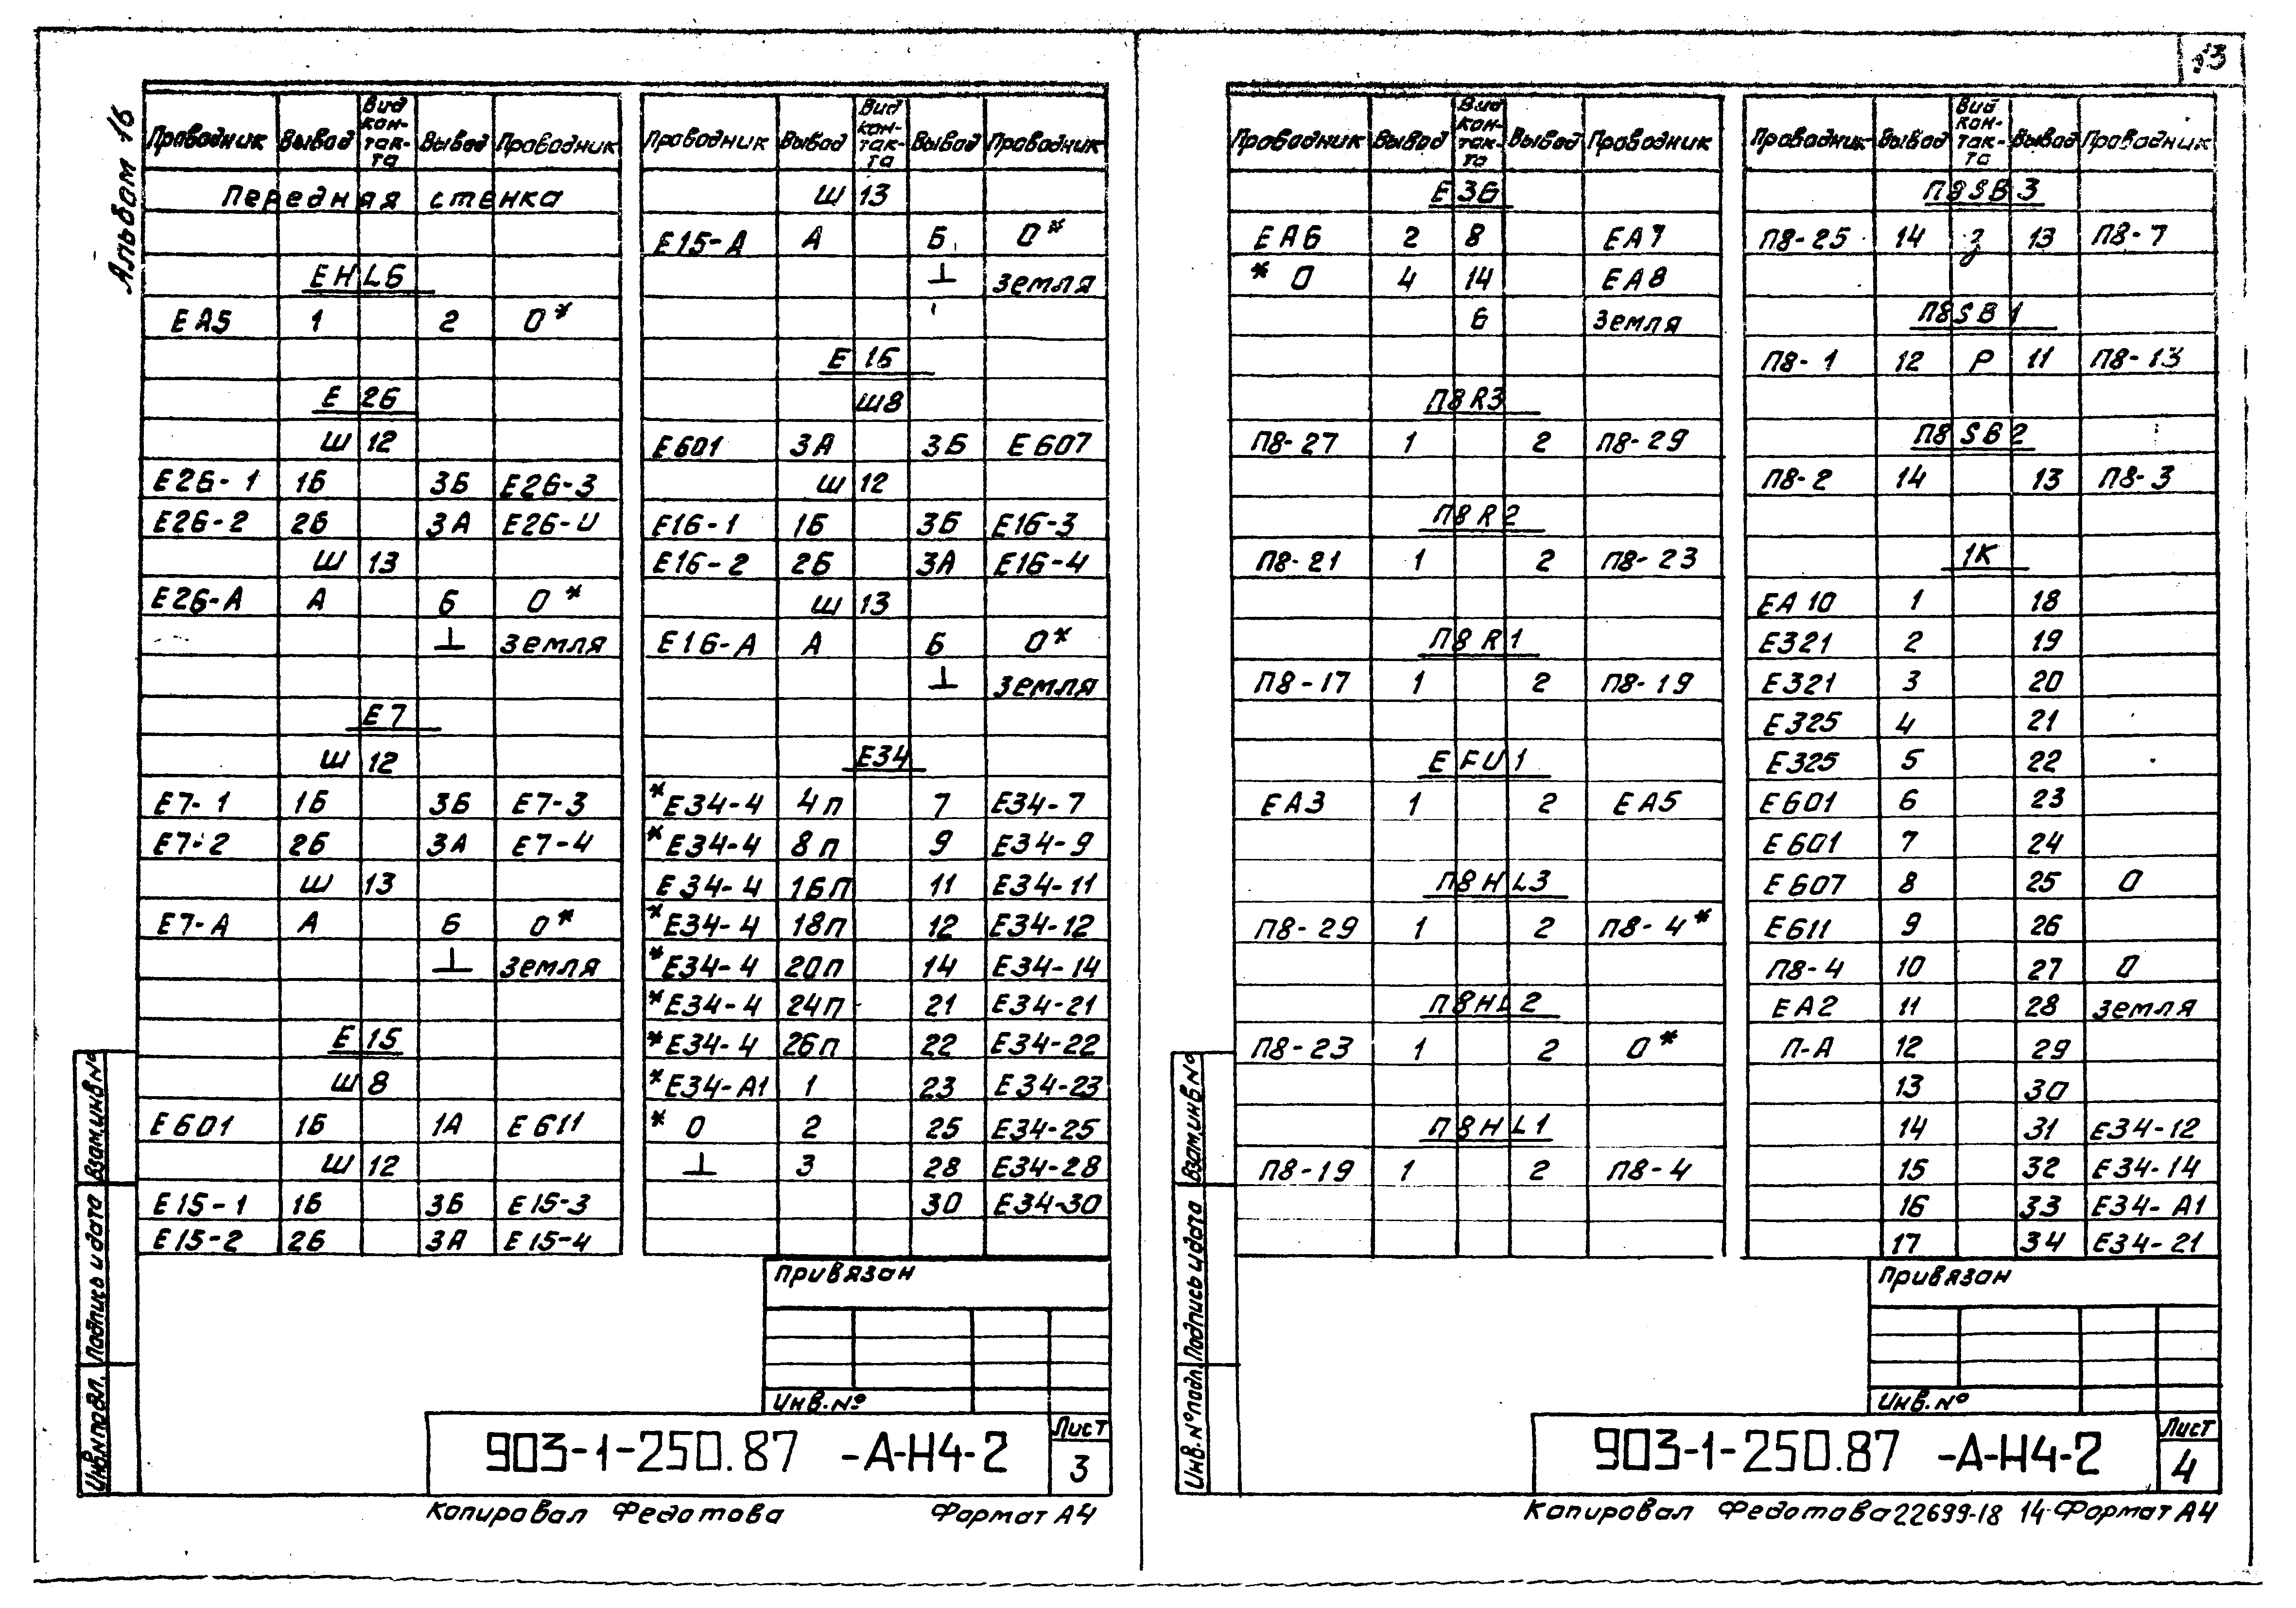 Альбом 16
Проводник Вывод Вид контакта Вывод Проводник
Передняя стенка
EHL6
EA5 1 2 0*
E26
Ш12
E26-1 1Б 3Б E26-3
E26-2 2Б 3А E26-U
Ш13
E26-А А Б 0*
⊥ земля
E7
Ш12
E7-1 1Б 3Б E7-3
E7-2 2Б 3А E7-4
Ш13
E7-А А Б 0*
⊥ земля
E15
Ш8
E601 1Б 1А E611
Ш12
E15-1 1Б 3Б E15-3
E15-2 2Б 3А E15-4
Проводник Вывод Вид контакта Вывод Проводник
Ш13
E15-А А Б 0*
⊥ земля
E16
Ш8
E601 3А 3Б E607
Ш12
E16-1 1Б 3Б E16-3
E16-2 2Б 3А E16-4
Ш13
E16-А А Б 0*
⊥ земля
E34
*E34-4 4п 7 E34-7
*E34-4 8п 9 E34-9
E34-4 16п 11 E34-11
*E34-4 18п 12 E34-12
*E34-4 20п 14 E34-14
*E34-4 24п 21 E34-21
*E34-4 26п 22 E34-22
*E34-А1 1 23 E34-23
*0 2 25 E34-25
⊥ 3 28 E34-28
30 E34-30
Привязан
Инв.№
903-1-250.87 -А-Н4-2
Лист
3
Копировал Федотова Формат А4
Инв.№подл. Подпись и дата Взам.инв№
Проводник Вывод Вид контакта Вывод Проводник
E36
EA6 2 8 EA7
*0 4 14 EA8
6 земля
П8R3
П8-27 1 2 П8-29
П8R2
П8-21 1 2 П8-23
П8R1
П8-17 1 2 П8-19
EFU1
EA3 1 2 EA5
П8HL3
П8-29 1 2 П8-4*
П8HL2
П8-23 1 2 0*
П8HL1
П8-19 1 2 П8-4
Проводник Вывод Вид контакта Вывод Проводник
П8SB3
П8-25 14 з 13 П8-7
П8SB1
П8-1 12 Р 11 П8-13
П8SB2
П8-2 14 13 П8-3
1К
EA10 1 18
E321 2 19
E321 3 20
E325 4 21
E325 5 22
E601 6 23
E601 7 24
E607 8 25 0
E611 9 26
П8-4 10 27 0
EA2 11 28 земля
П-А 12 29
13 30
14 31 E34-12
15 32 E34-14
16 33 E34-А1
17 34 E34-21
Привязан
Инв.№
903-1-250.87 -А-Н4-2
Лист
4
Копировал Федотова 22699-18 14 Формат А4
Инв.№подл. Подпись и дата Взам.инв.№